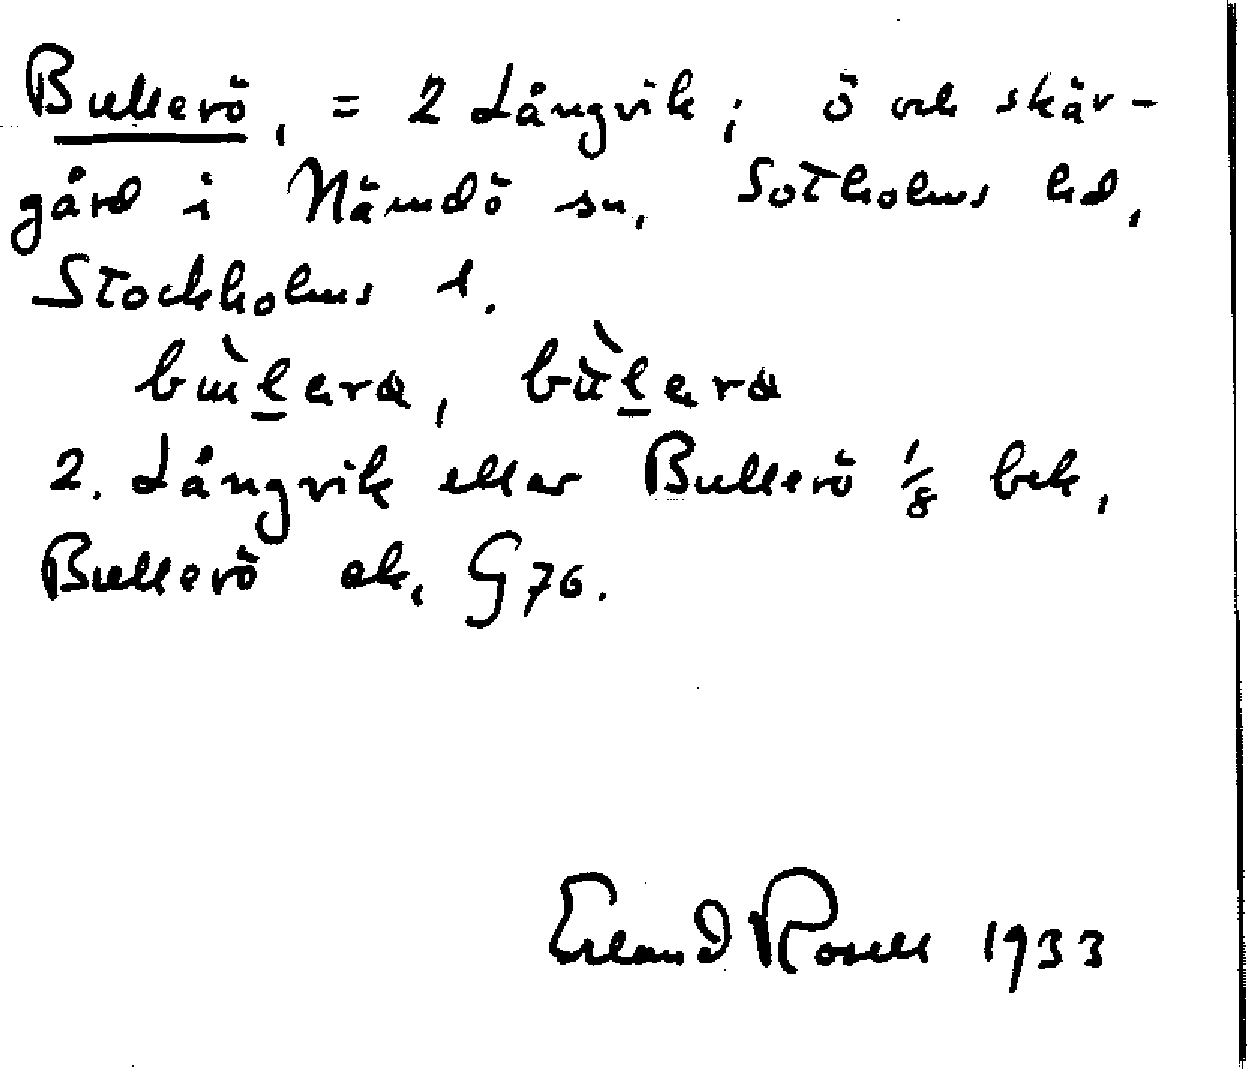 Bullerö, = 2 Långvik; ö och skär-
gård i Nämdö sn, Sotholms hd,
Stockholms l.
2. Långvik eller Bullerö 1/8
Bullerö ek, G 76.
Erland Rosell 1933